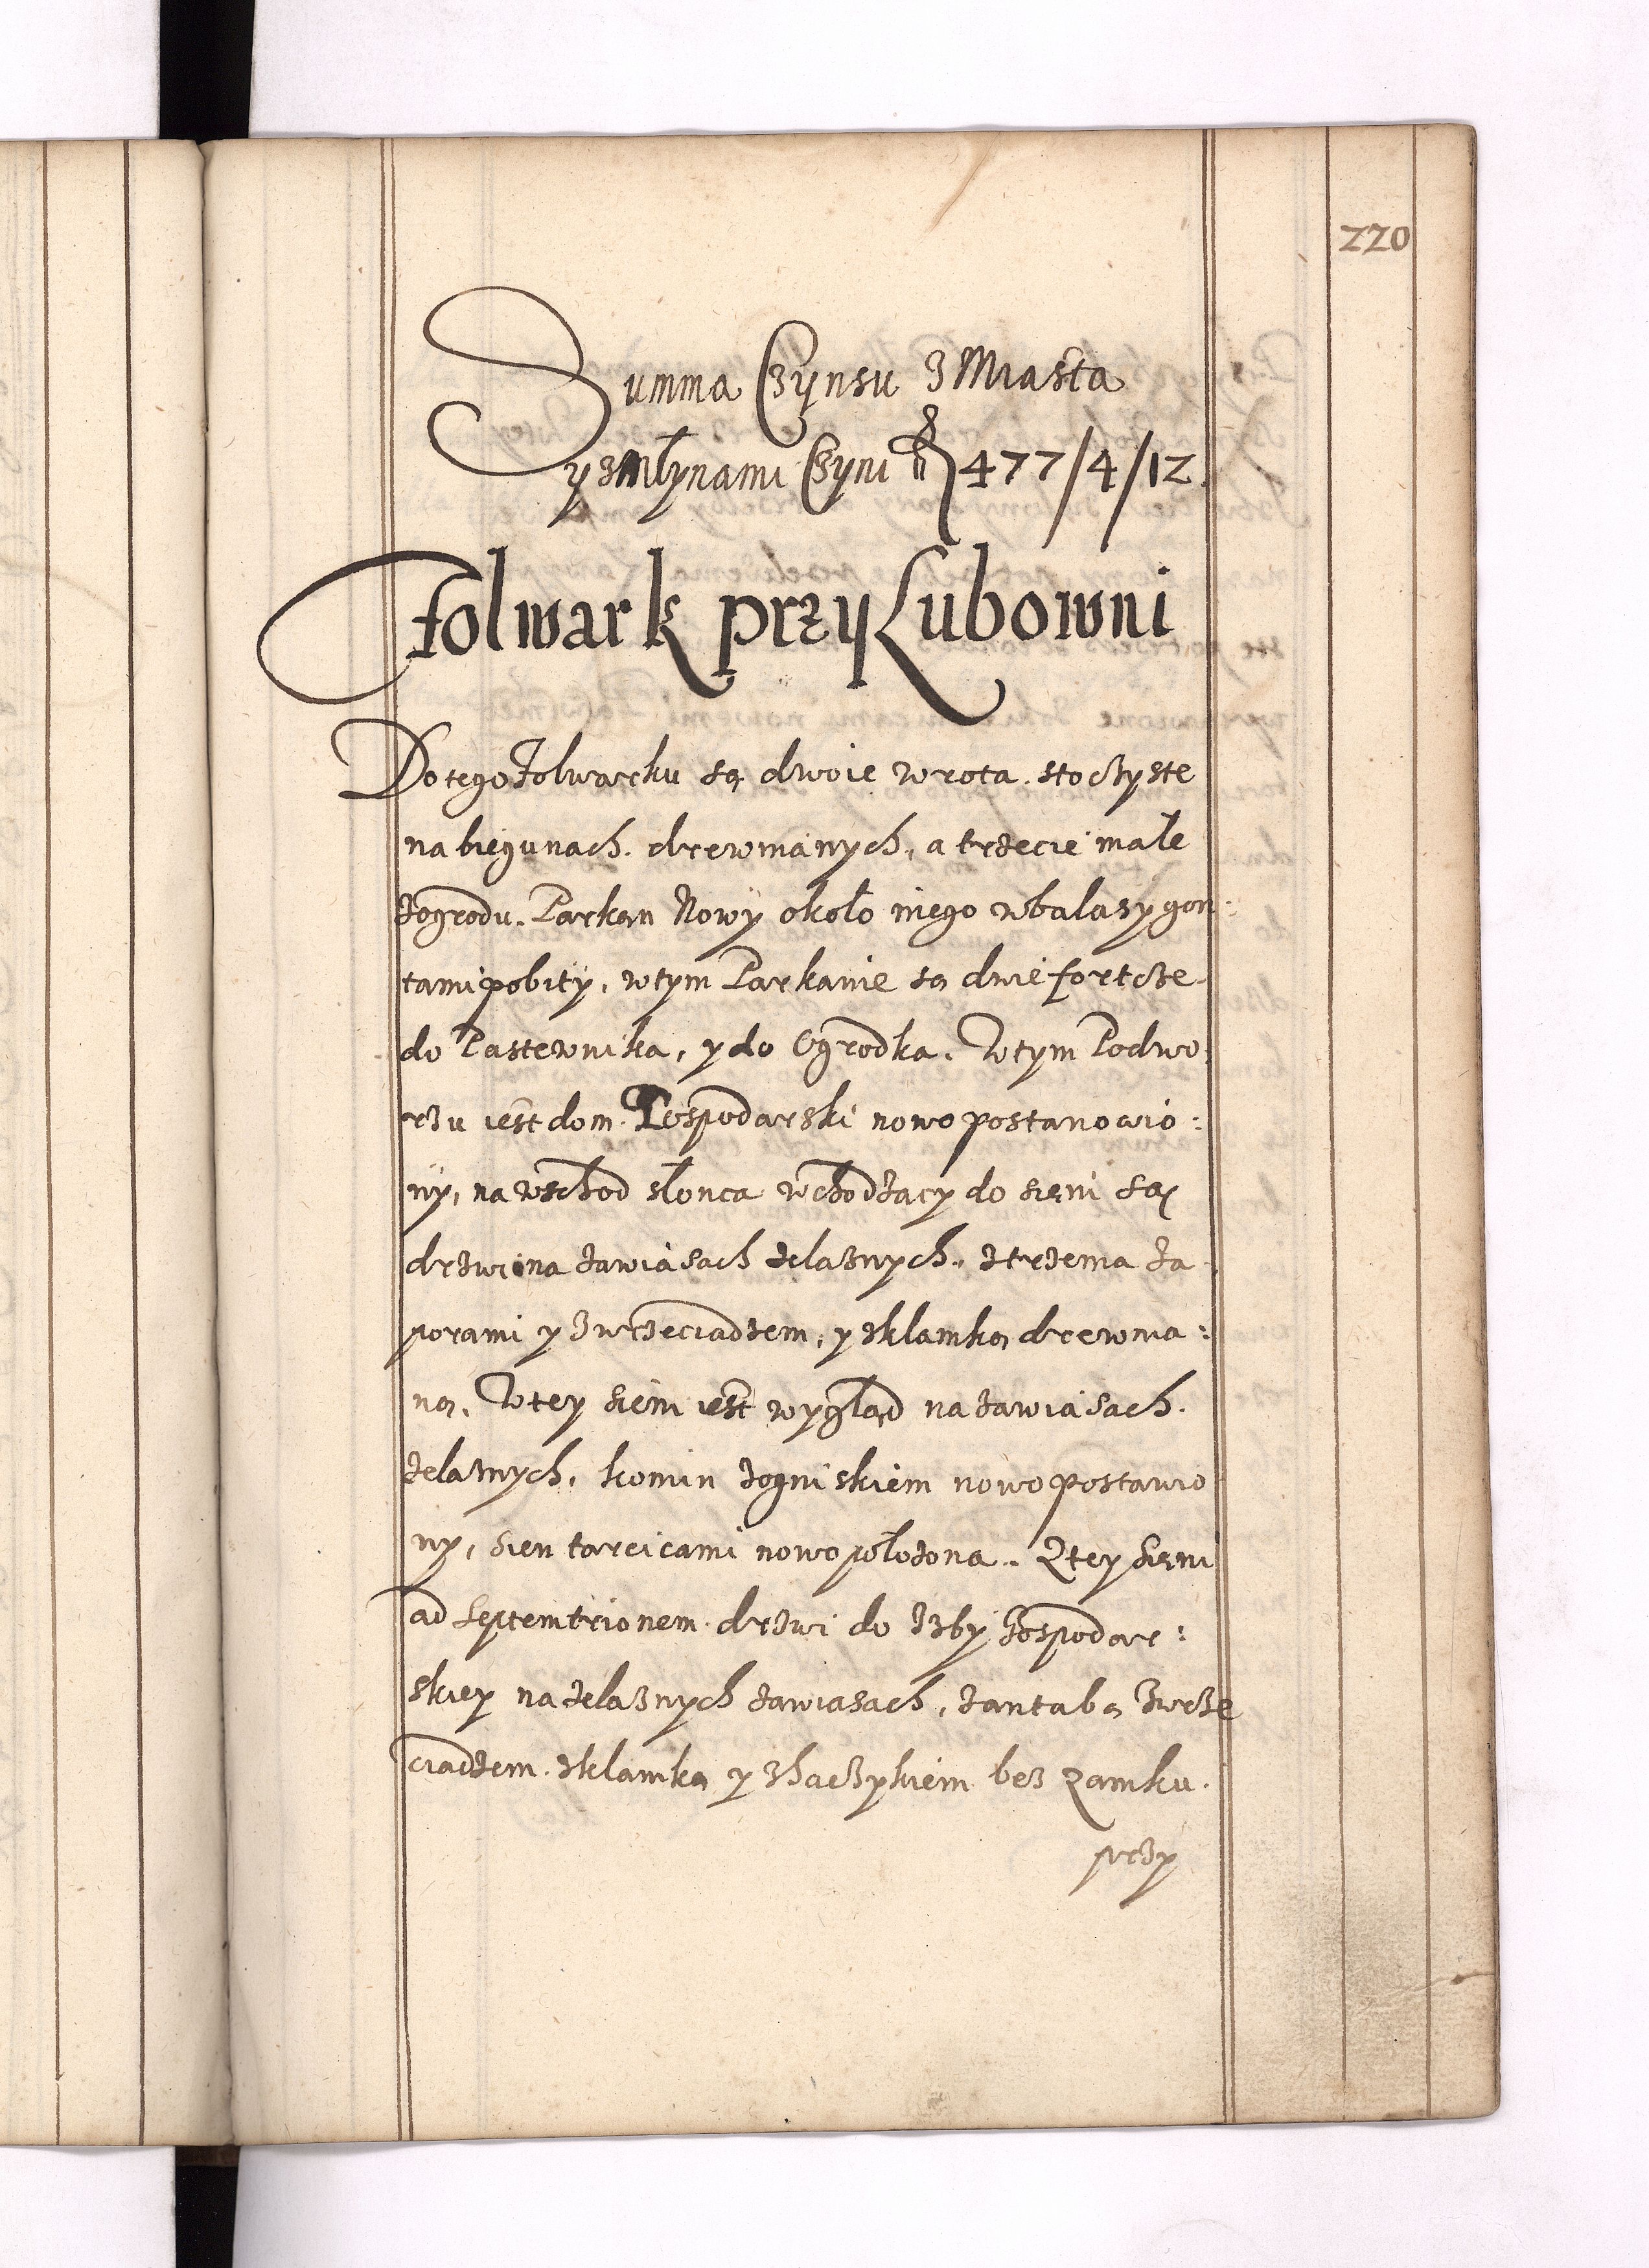 220
Summa Czÿnsu z Miasta
y z Młynami Czyni fl 477/4/12.
Folwark przÿ Lubowni
Do tego Folwarku są dwoie wrota stoczyste
na biegunach drewnianych, a trzecie małe
zogrodu. Parkan Nowÿ około niego w balasy gon:
tami pobitÿ, w tym Parkanie są dwie fortcze
do Pastewnika, y do Ogrodka. W tym Podwo:
rzu iest dom Gospodarski nowo postanowio:
nÿ, na wschod słonca wchodzacy do sieni są
drzwi na zawiasach zelaznych, z trzema za:
porami y z wrzeciadzem, y z klamką drewnia:
ną. W tey sieni iest wygląd na zawiasach
zelaznych, komin z ogniskiem nowo postawio
ny, sien tarcicami nowo położona. Z tey sieni
ad Septemtrionem drzwi do Izby Gospodar:
skiey na zelaznych zawiasach, z antabą z wrze
ciadzem z klamką y z haczykiem bez zamku.
przy